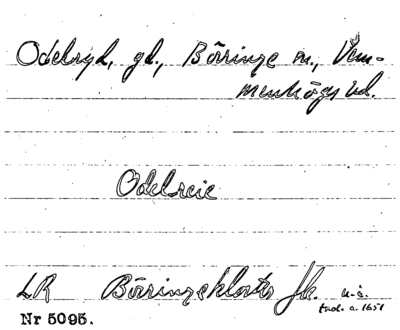 Odelsryd, gd., Börringe sn., Vem-
menhögs hd.
Odelreie
LR Börringekloster Jb. u.å.
trol. c. 1651
Nr 5095.